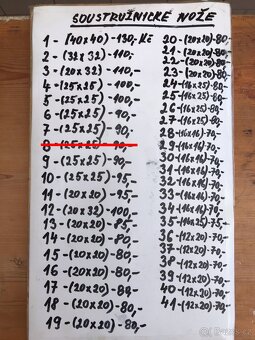 SOUSTRUŽNICKÉ NOŽE
1 - (40x40) - 130,- Kč
2 - (32x32) - 110,-
3 - (20x32) - 110,-
4 - (25x25) - 100,-
5 - (25x25) - 100,-
6 - (25x25) - 90,-
7 - (25x25) - 90,-
8 - (25x25) - 90,-
9 - (25x25) - 90,-
10 - (25x25) - 95,-
11 - (20x20) - 95,-
12 - (20x32) - 100,-
13 - (20x20) - 85,-
14 - (20x20) - 80,-
15 - (20x20) - 80,-
16 - (20x20) - 80,-
17 - (20x20) - 80,-
18 - (20x20) - 80,-
19 - (20x20) - 80,-
20 - (20x20) - 80,-
21 - (20x20) - 80,-
22 - (20x20) - 80,-
23 - (20x20) - 80,-
24 - (16x25) - 80,-
25 - (16x25) - 80,-
26 - (16x25) - 80,-
27 - (16x25) - 80,-
28 - (16x16) - 70,-
29 - (16x16) - 70,-
30 - (16x16) - 70,-
31 - (16x16) - 70,-
32 - (16x16) - 70,-
33 - (16x16) - 70,-
34 - (16x16) - 70,-
35 - (16x25) - 75,-
36 - (12x20) - 70,-
37 - (12x20) - 70,-
38 - (12x20) - 70,-
39 - (12x20) - 70,-
40 - (12x20) - 70,-
41 - (12x20) - 70,-